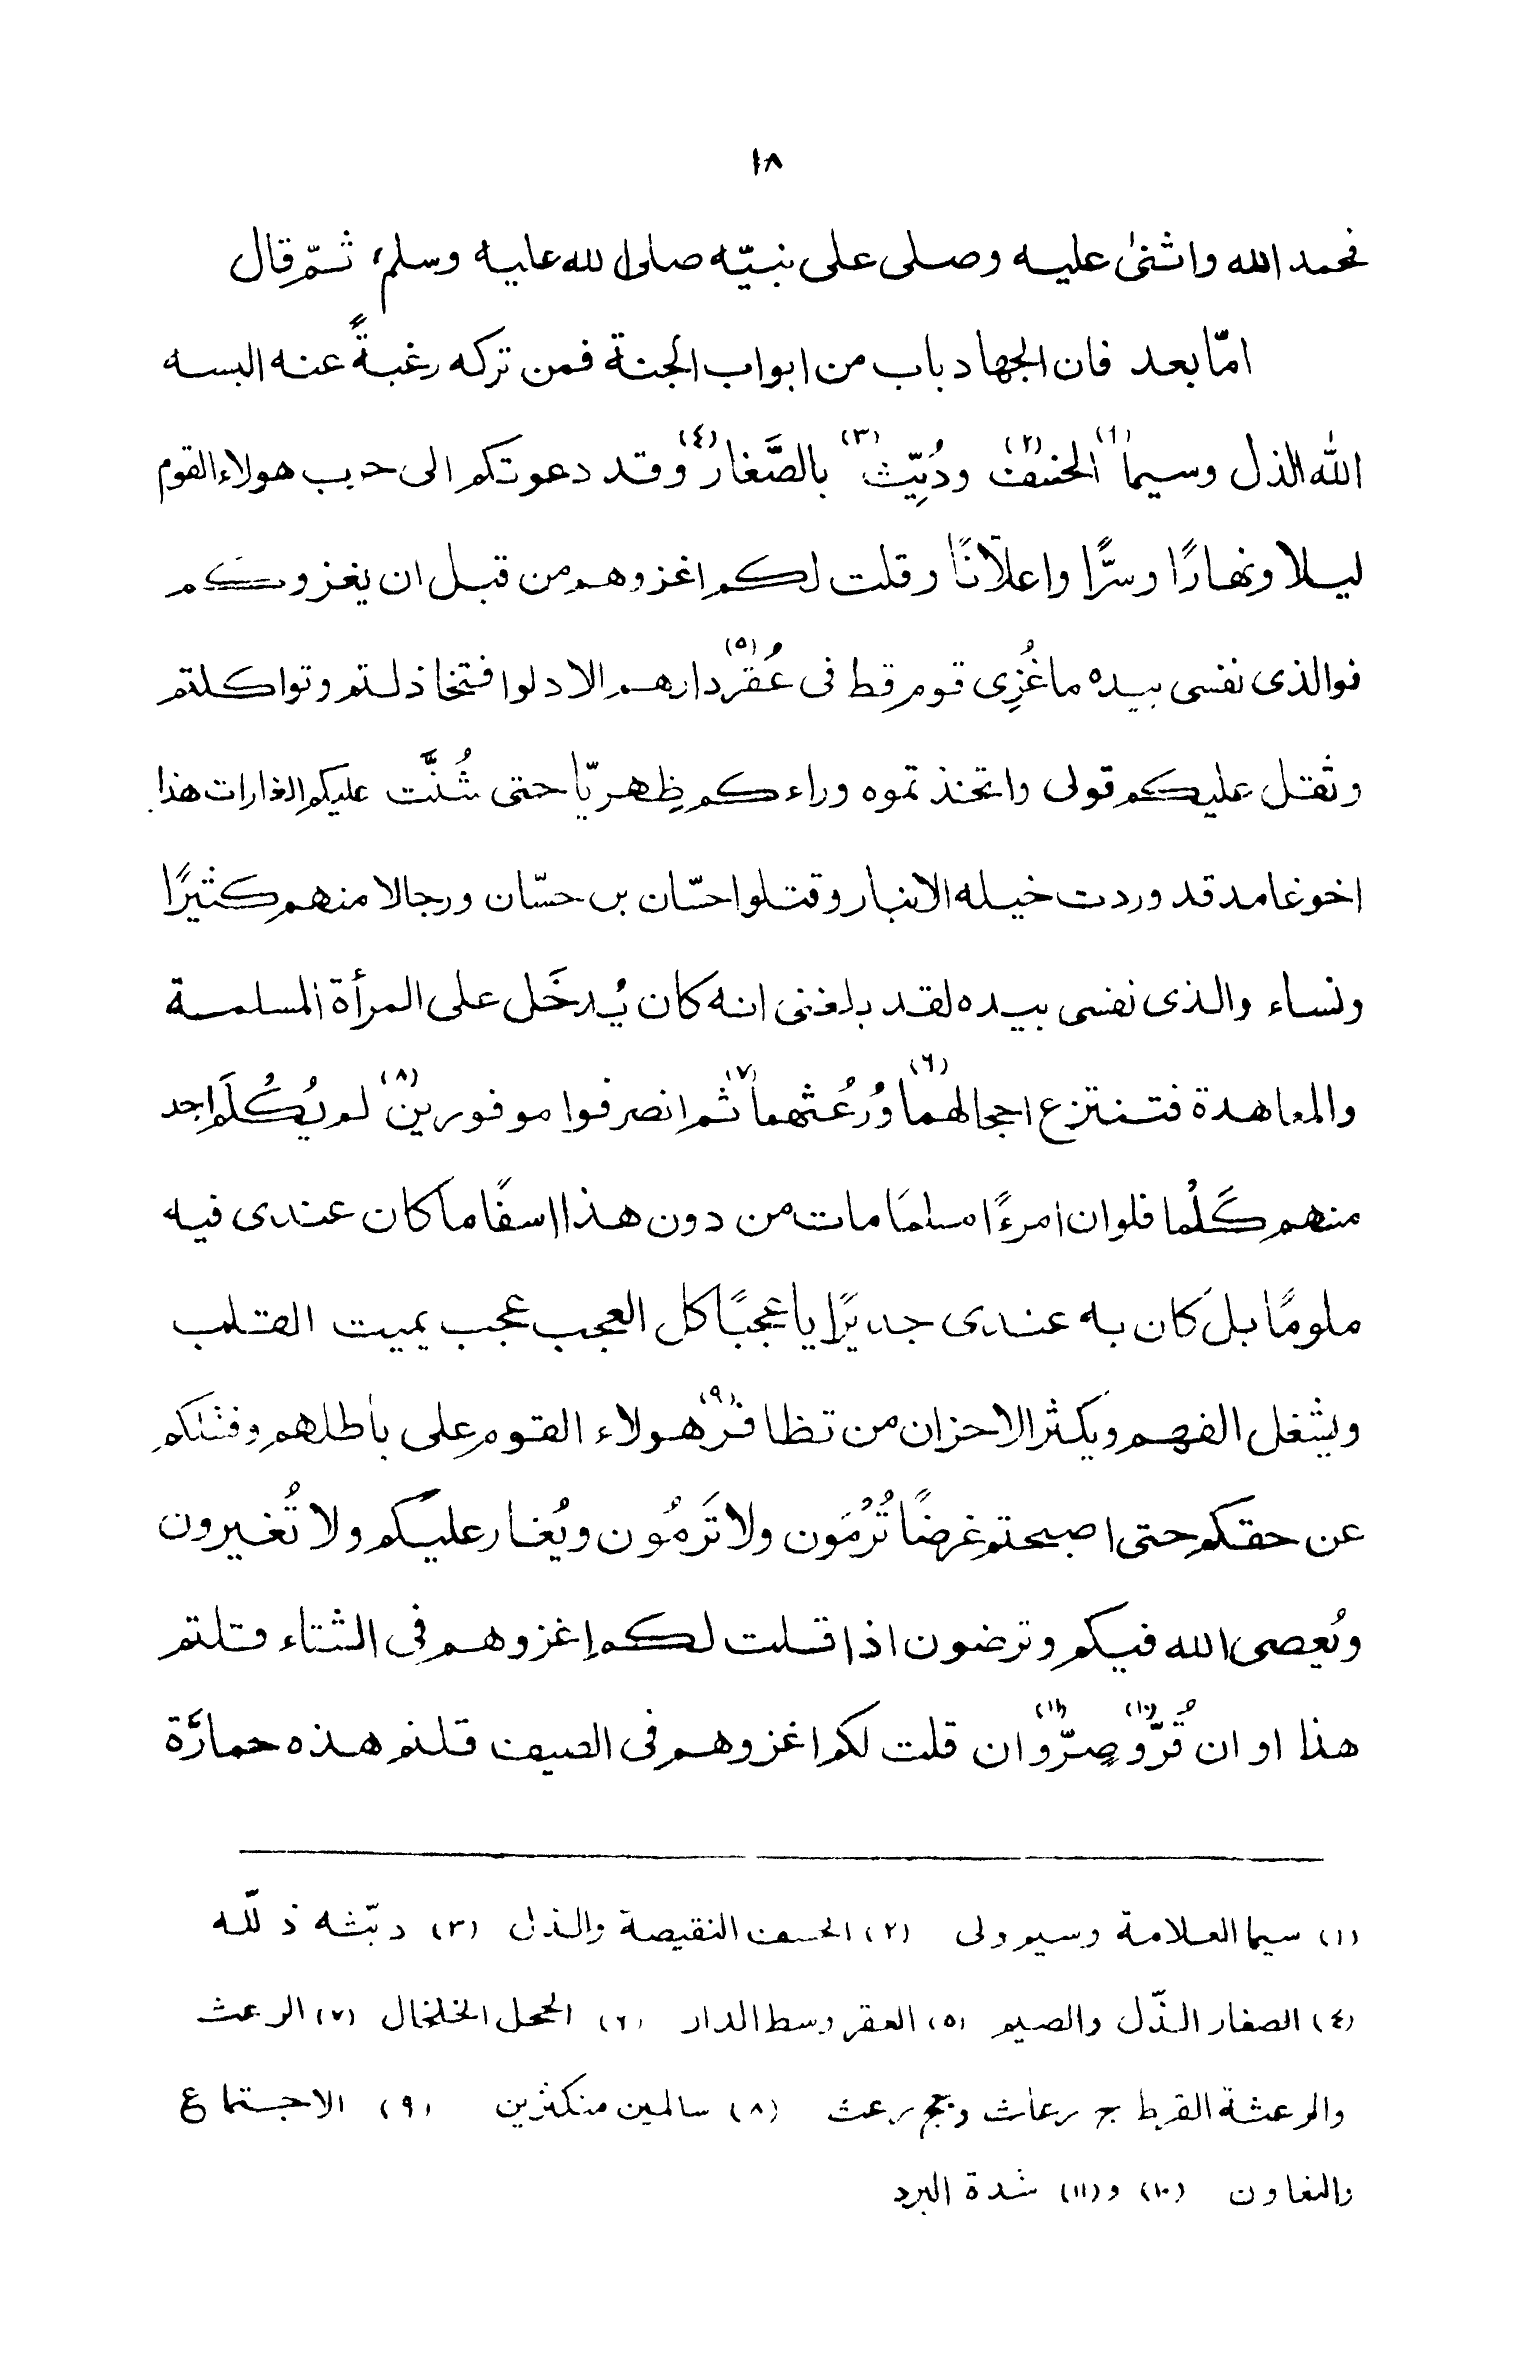 ١٨
فحمد الله واثنىٰ عليه وصلى على نبيّه صلى الله عليه وسلم، ثمّ قال
امّا بعد فان الجهاد باب من ابواب الجنة فمن تركه رغبةً عنه البسه
الله الذل وسيما(١) الخسف(٢) ودُيِّث(٣) بالصَّغار(٤) وقد دعوتكم الى حرب هولاء القوم
ليلا ونهارًا وسرًّا واعلانًا وقلت لكم اغزوهم من قبل ان يغزوكم
فوالذى نفسى بيده ما غُزِى قوم قط فى عُقْر(٥) دارهم الا دلوا فتخاذلتم وتواكلتم
وثقل عليكم قولى واتخذتموه وراءكم ظِهريّا حتى شُنَّت عليكم الغارات هذا
اخو غامد قد وردت خيله الانبار وقتلوا حسّان بن حسّان ورجالا منهم كثيرًا
ونساء والذى نفسى بيده لقد بلغنى انه كان يُدخَل على المرأة المسلمة
والمعاهدة فتنتزع احجالهما(٦) ورُعُثهما(٧) ثم انصرفوا موفورين(٨) لم يُكْلَم احد
منهم كَلْما فلو ان امرءًا مسلمًا مات من دون هذا اسفًا ما كان عندى فيه
ملومًا بل كان به عندى جديرًا يا عجبًا كل العجب عجب يميت القلب
ويشغل الفهم ويكثر الاحزان من تظافر(٩) هولاء القوم على باطلهم وفشلكم
عن حقكم حتى اصبحتم غرضًا تُرْمَون ولا تَرمُون ويُغار عليكم ولا تُغيرون
ويُعصى الله فيكم وترضون اذا قلت لكم إغزوهم فى الشتاء قلتم
هذا اوان قُرّ(١٠) وصِرّ(١١) وان قلت لكم اغزوهم فى الصيف قلتم هذه حمارّة
(١) سيما العلامة وسيم ولى (٢) الخسف النقيصة والذل (٣) ديّثه ذلّله
(٤) الصغار الذّل والضيم (٥) العقر وسط الدار (٦) الحجل الخلخال (٧) الرعث
والرعثة القرط ج رعاث وجج رعث (٨) سالمين متكثرين (٩) الاجتماع
والتعاون (١٠) و(١١) شدة البرد